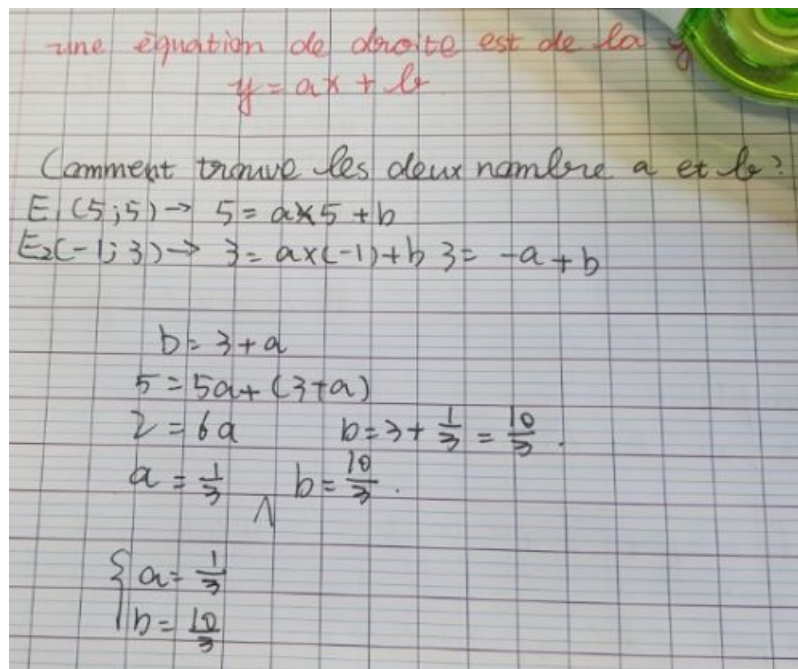 une équation de droite est de la
y = ax + b
Comment trouve les deux nombre a et b?
E1(5;5) → 5 = a×5 + b
E2(-1;3) → 3 = a×(-1)+b 3 = -a + b
b = 3 + a
5 = 5a + (3+a)
2 = 6a b = 3 + 1/3 = 10/3 .
a = 1/3 ∧ b = 10/3 .
{ a = 1/3
b = 10/3